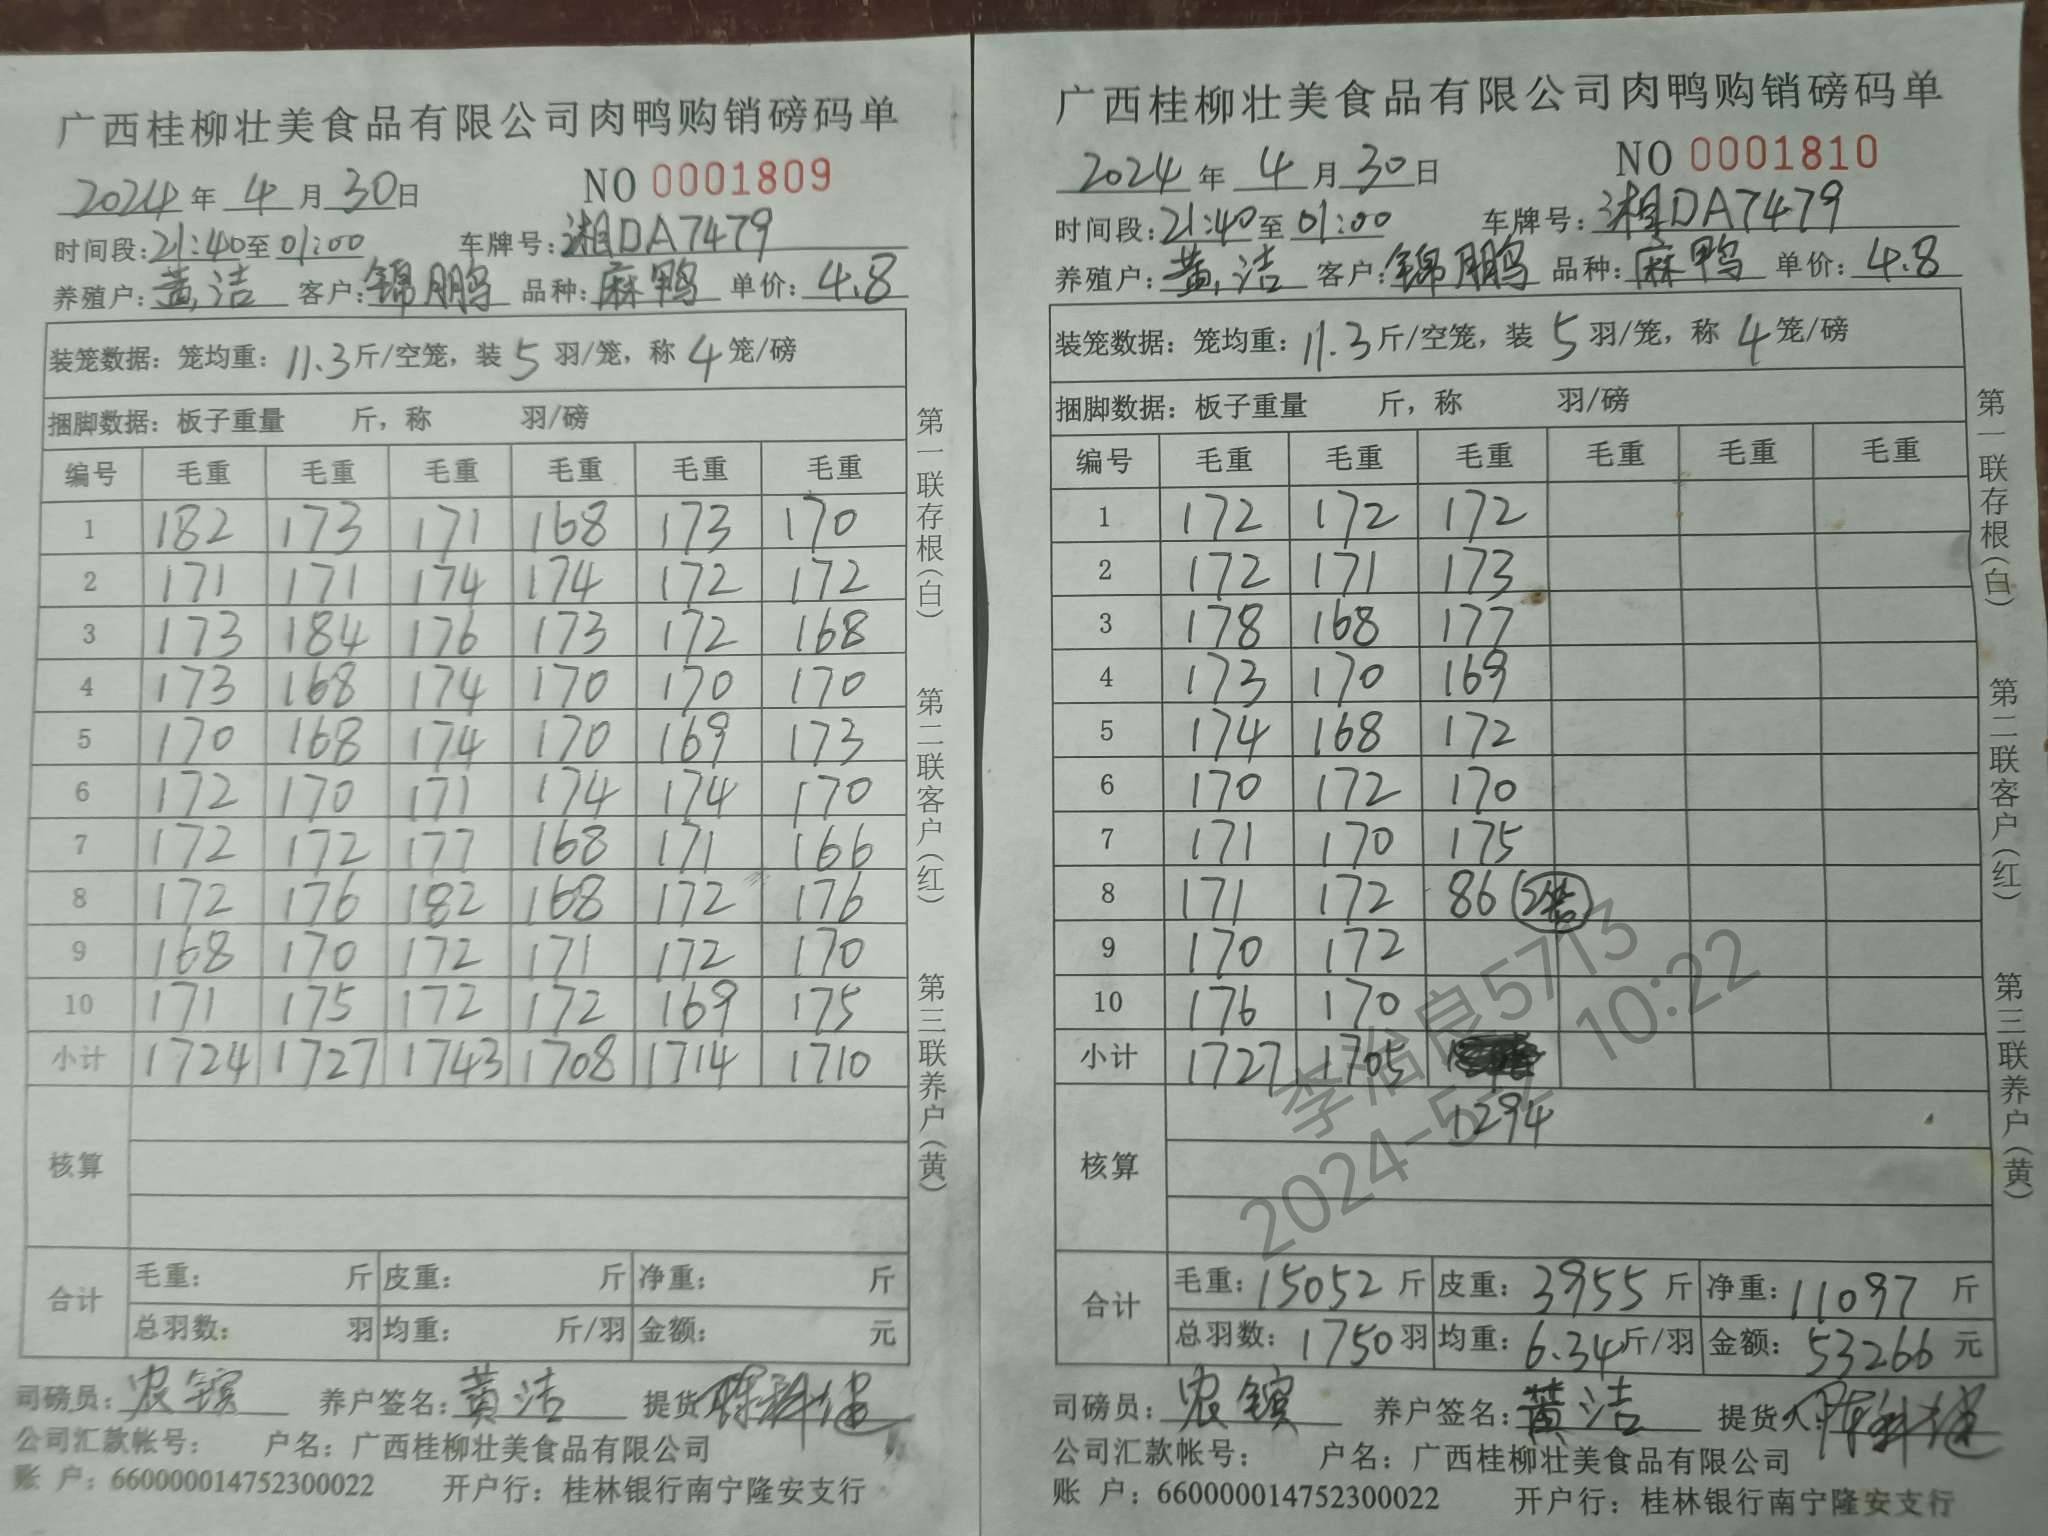 广西桂柳壮美食品有限公司肉鸭购销磅码单
2024年 4月30日 NO 0001809
时间段:21:40至01:00 车牌号:湘DA7479
养殖户:黄洁 客户:锦鹏 品种:麻鸭 单价:4.8
装笼数据:笼均重:11.3斤/空笼,装5羽/笼,称4笼/磅
捆脚数据:板子重量 斤,称 羽/磅
编号 毛重 毛重 毛重 毛重 毛重 毛重
1 182 173 171 168 173 170
2 171 171 174 174 172 172
3 173 184 176 173 172 168
4 173 168 174 170 170 170
5 170 168 174 170 169 173
6 172 170 171 174 174 170
7 172 172 177 168 171 166
8 172 176 182 168 172 176
9 168 170 172 171 172 170
10 171 175 172 172 169 175
小计 1724 1727 1743 1708 1714 1710
核算
合计
毛重: 斤 皮重: 斤 净重: 斤
总羽数: 羽 均重: 斤/羽 金额: 元
司磅员:农镔 养户签名:黄洁 提货
公司汇款帐号: 户名:广西桂柳壮美食品有限公司
账 户:660000014752300022 开户行:桂林银行南宁隆安支行
第一联存根(白) 第二联客户(红) 第三联养户(黄)
广西桂柳壮美食品有限公司肉鸭购销磅码单
2024年 4月30日 NO 0001810
时间段:21:40至01:00 车牌号:湘DA7479
养殖户:黄洁 客户:锦鹏 品种:麻鸭 单价:4.8
装笼数据:笼均重:11.3斤/空笼,装5羽/笼,称4笼/磅
捆脚数据:板子重量 斤,称 羽/磅
编号 毛重 毛重 毛重 毛重 毛重 毛重
1 172 172 172
2 172 171 173
3 178 168 177
4 173 170 169
5 174 168 172
6 170 172 170
7 171 170 175
8 171 172 86
9 170 172
10 176 170
小计 1727 1705
1294
核算
合计
毛重:15052斤 皮重:3955斤 净重:11097斤
总羽数:1750羽 均重:6.34斤/羽 金额:53266元
司磅员:农镔 养户签名:黄洁 提货人:
公司汇款帐号: 户名:广西桂柳壮美食品有限公司
账 户:660000014752300022 开户行:桂林银行南宁隆安支行
第一联存根(白) 第二联客户(红) 第三联养户(黄)
5713
10:22